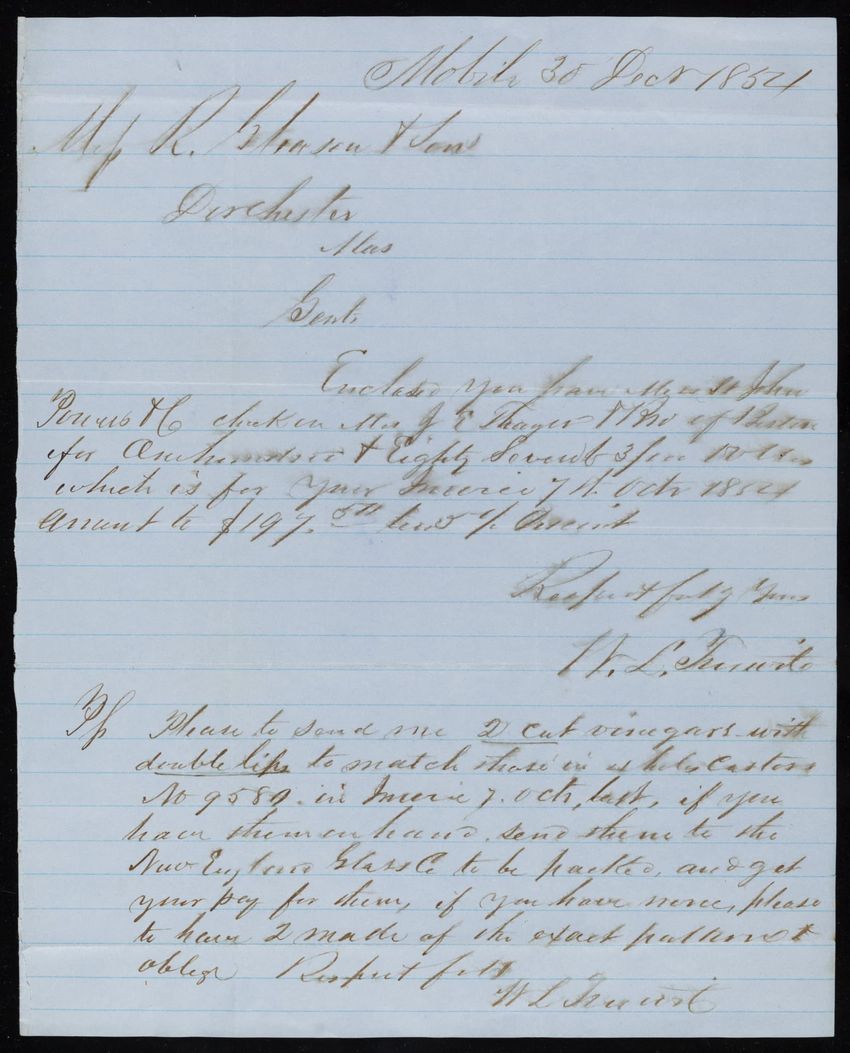 Mobile 30 Decr 1854
Mess R. Gleason & Sons
Dorchester
Mas
Gents
Enclosed you have Mess St John
Powers & C check on Mess J E Thayer & Bro of Boston
for One hundred & Eighty Seven 3/100 Dollars
which is for your Invoice 7th Octr 1854
amount to $197. less 5 %
Respectfully Yours
W. L. Truwit
PS Please to send me 2 cut vinegars with
double lips to match those in Castors
No 9580 in Invoice 7. Octr, last, if you
have them on hand, send them to the
New England Glass Co to be packed, and get
your pay for them, if you have none, please
to have 2 made of the exact pattern &
oblige Respectfully
W L Truwit